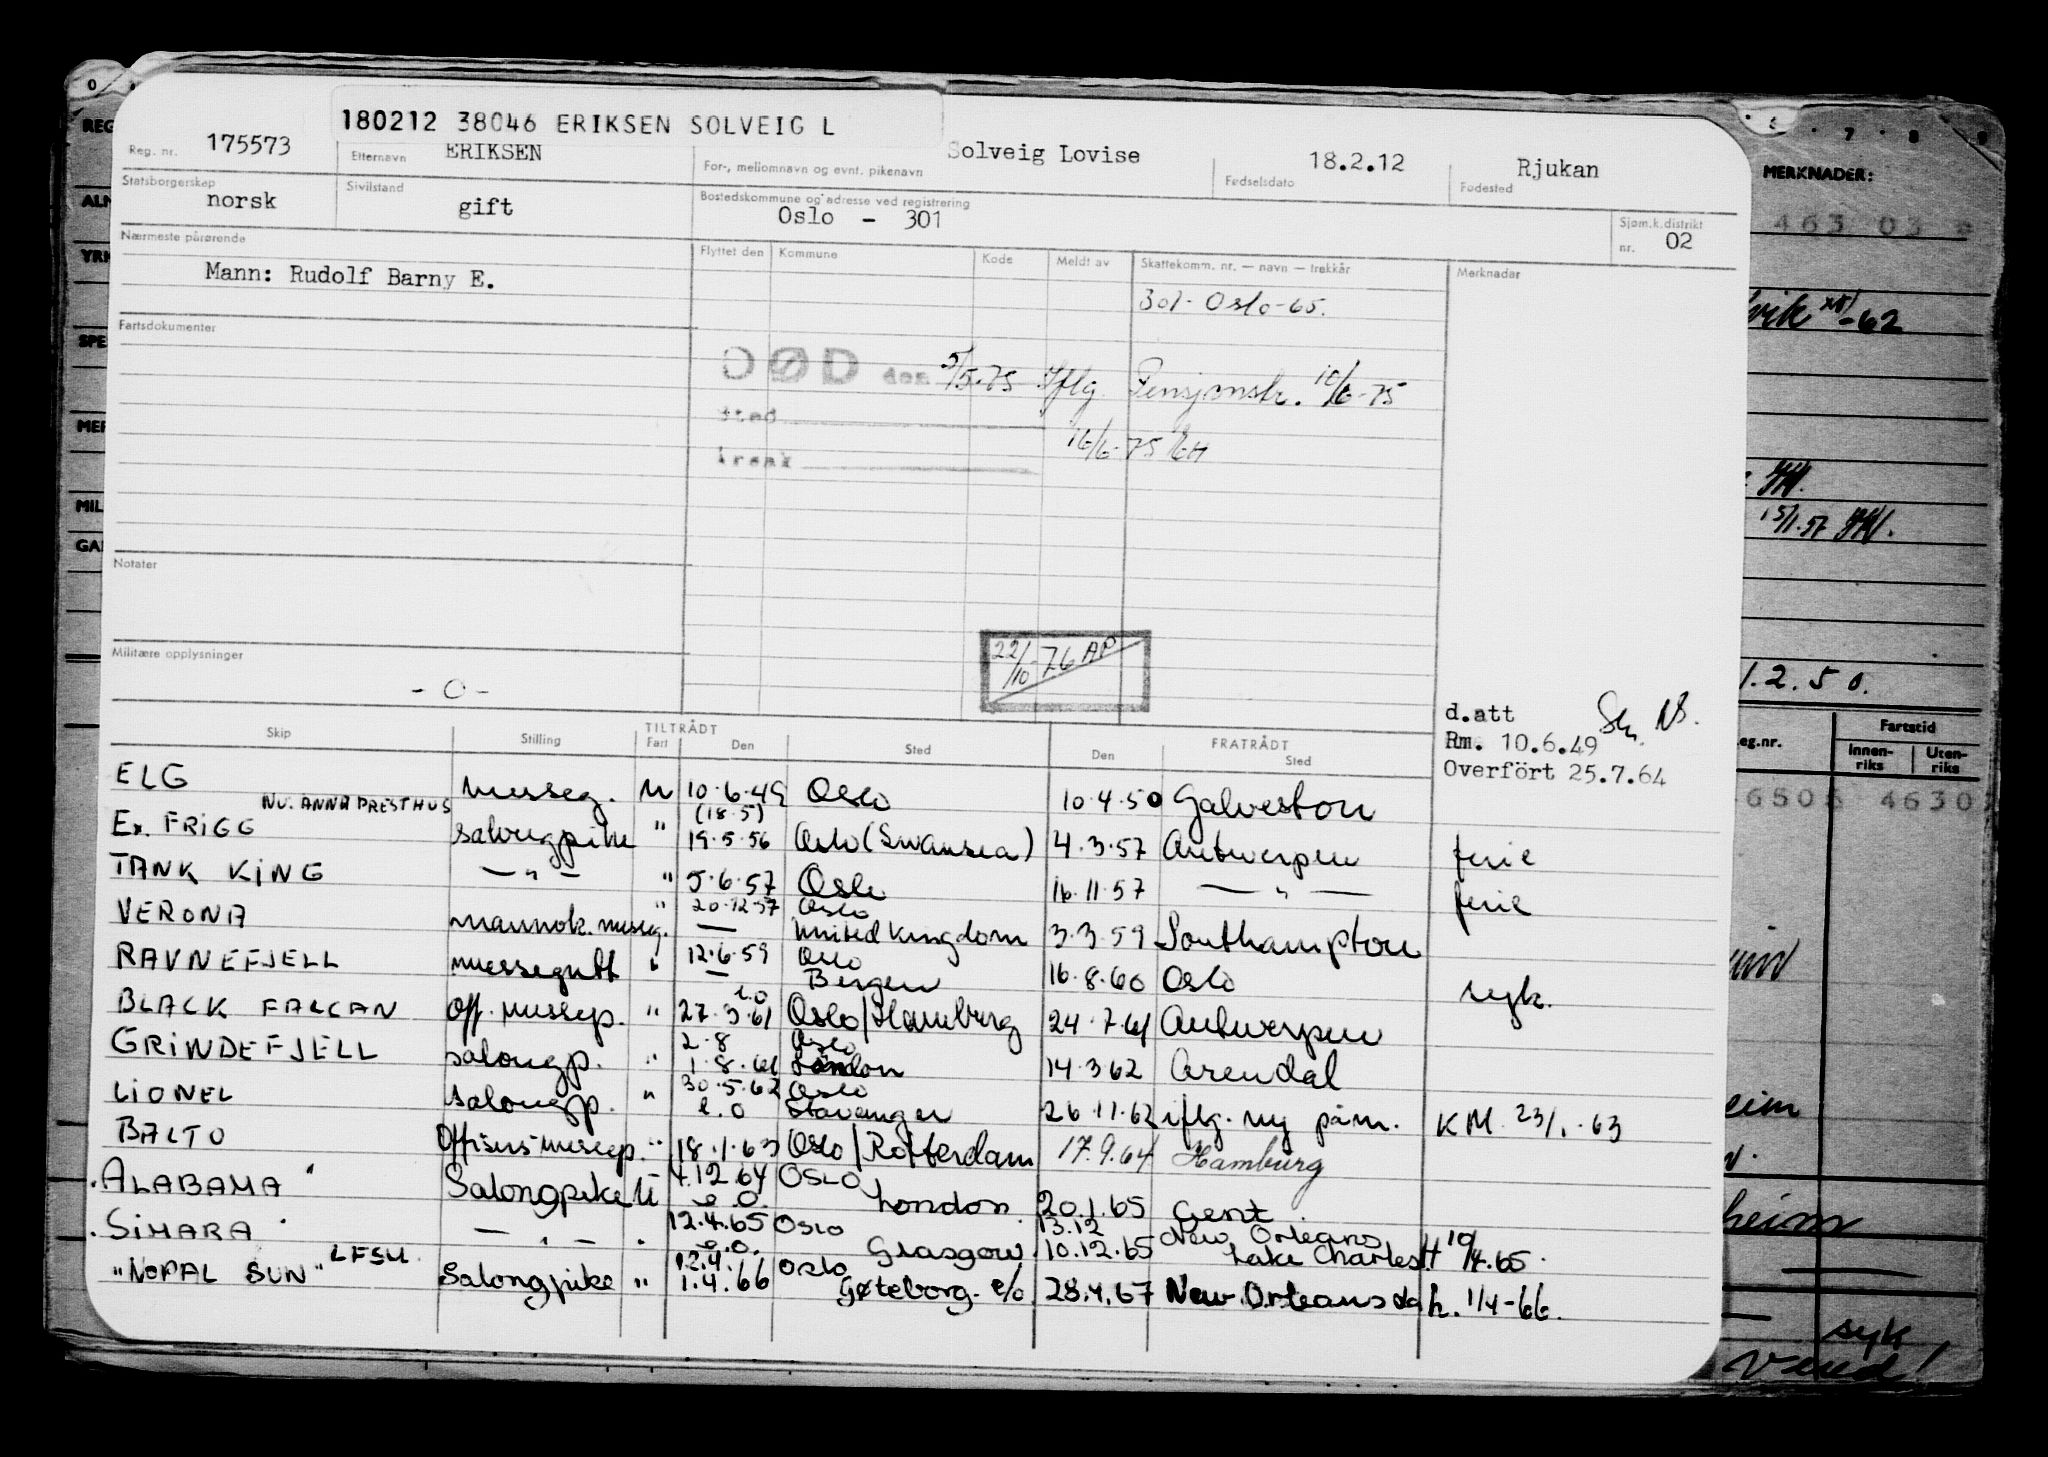 180212 38046 ERIKSEN SOLVEIG L
Reg. nr. 175573 Etternavn ERIKSEN For-, mellomnavn og evnt. pikenavn Solveig Lovise Fødselsdato 18.2.12 Fødested Rjukan
Statsborgerskap norsk Sivilstand gift Bostedskommune og adresse ved registrering Oslo - 301 Sjøm.k.distrikt nr. 02
Nærmeste pårørende Flyttet den Kommune Kode Meldt av Skattekomm. nr. — navn — trekkår Merknader
Mann: Rudolf Barny E. 301- Oslo-65.
Fartsdokumenter
DØD den 5/5-75 Iflg. Pensjonstr. 10/6-75
Sted
16/6-75 EH
Årsak
Notater
22/10-76 AP
Militære opplysninger
- 0 -
d.att
Rm. 10.6.49
Overfört 25.7.64
Skip Stilling TILTRÅDT Fart Den Sted FRATRÅDT Den Sted
ELG messeg. u 10.6.49 Oslo 10.4.50 Galveston
NU. ANNA PRESTHUS (18.5)
Ex. FRIGG salongpike " 19.5.56 Oslo (Swansea) 4.3.57 Antwerpen ferie
TANK KING — " — " 5.6.57 Oslo 16.11.57 — " — ferie
" 20.12.57 Oslo
VERONA mannsk. messeg. — United Kingdom 3.3.59 Southampton
RAVNEFJELL messegutt " 12.6.59 Oslo
— Bergen 16.8.60 Oslo syk.
e.o
BLACK FALCAN off. messep. " 27.3.61 Oslo/Hamburg 24.7.61 Antwerpen
2.8 Oslo
GRINDEFJELL salongp. " 1.8.61 London 14.3.62 Arendal
30.5.62 Oslo
LIONEL salongp. " e.o Stavanger 26.11.62 iflg. ny påm. KM. 23/1.63
BALTO Offisersmessep. " 18.1.63 Oslo/Rotterdam 17.9.64 Hamburg
4.12.64 OSLO
"ALABAMA" Salongpike U e.o. London 20.1.65 Gent.
12.4.65 Oslo 13.12 New Orleans
"SIMARA" — " — " e.o. Glasgow 10.12.65 Lake Charles H 10/4.65.
12.4. Oslo
"NOPAL SUN" LESU Salongpike " 1.4.66 Gøteborg. e/o 28.4.67 New Orleans da h. 1/4-66.
0
REG
ALM
YRK
SPE
MER
MIL
GA
6 7 8 9
MERKNADER:
463 03
-62
15/1.57
1.2.50.
eg.nr. Fartstid
Innenriks Utenriks
4630
eim
heim
syk
Vend!